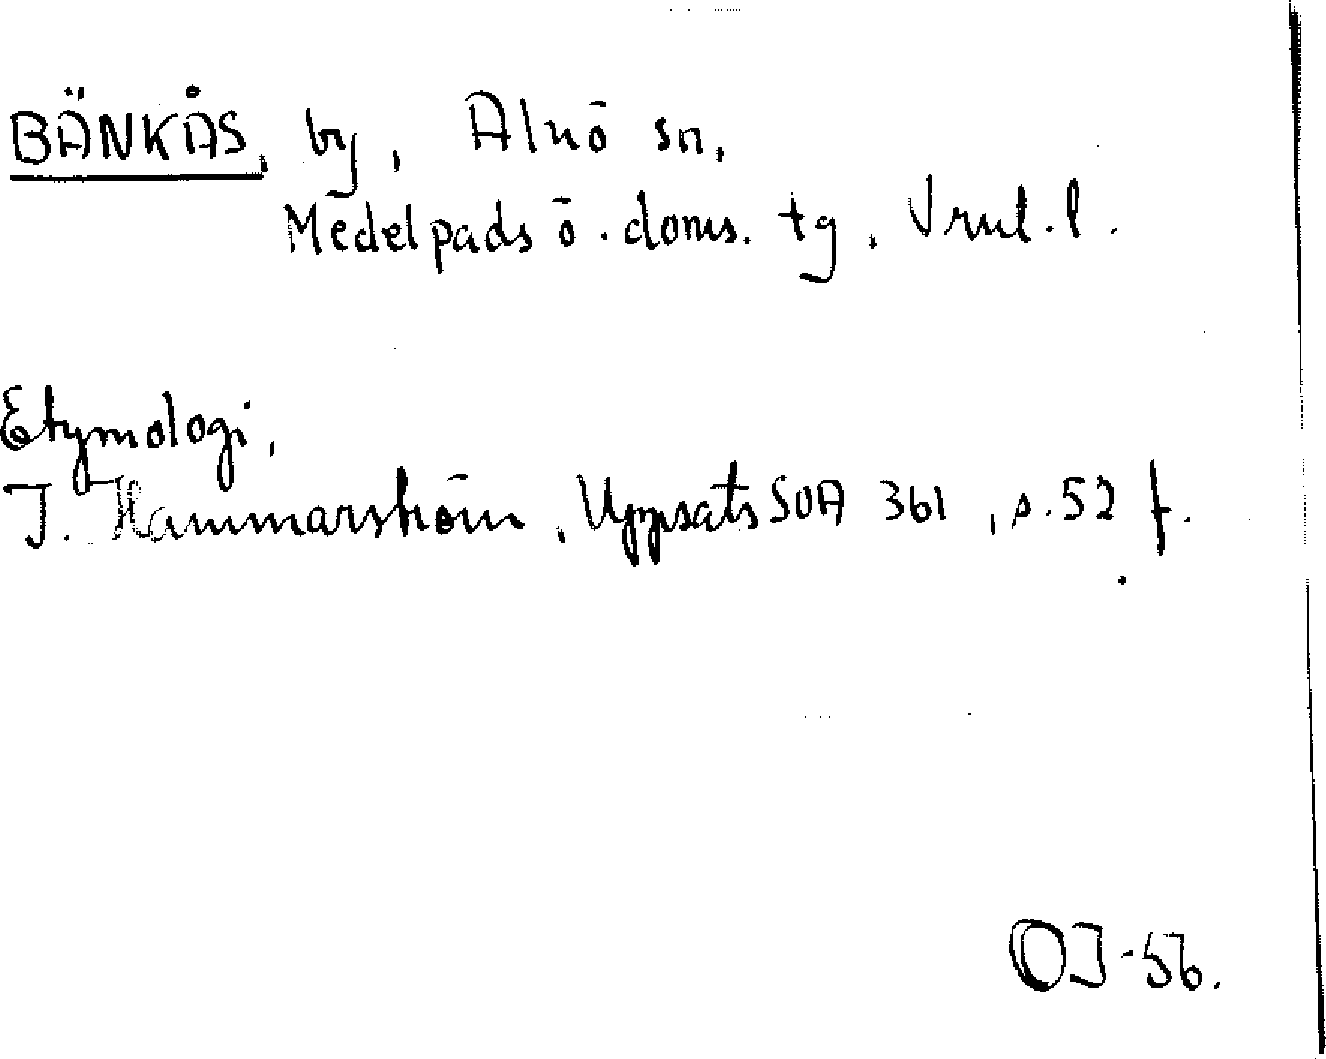 BÄNKÅS, by, Alnö sn,
Medelpads ö. doms. tg, Vrnl. l.
Etymologi,
J. Hammarström, Uppsats SOA 361, s. 52 f.
OJ-56.